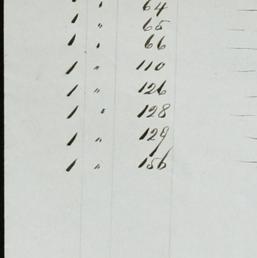 1 " 64
1 " 65
1 " 66
1 " 110
1 " 126
1 " 128
1 " 129
1 " 156